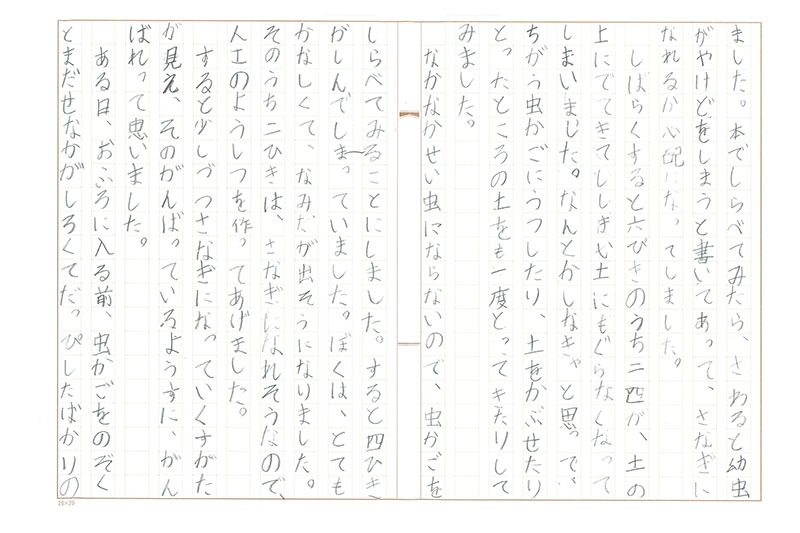 ました。本でしらべてみたら、さわると幼虫
がやけどをしまうと書いてあって、さなぎに
なれるか心配になってしました。
しばらくすると六ぴきのうち二匹が、土の
上にでてきてししまい土にもぐらなくなって
しまいました。なんとかしなきゃと思って、
ちがう虫かごにうつしたり、土をかぶせたり
とったところの土をも一度とってきたりして
みました。
なかなかせい虫にならないので、虫かごを
しらべてみることにしました。すると四ひき
がしんでしまっていました。ぼくは、とても
かなしくて、なみだが出そうになりました。
そのうち二ひきは、さなぎになれそうなので、
人工のようしつを作ってあげました。
すると少しづつさなぎになっていくすがた
が見え、そのがんばっているようすに、がん
ばれって思いました。
ある日、おふろに入る前、虫かごをのぞく
とまだせなかがしろくてだっぴしたばかりの
20×20